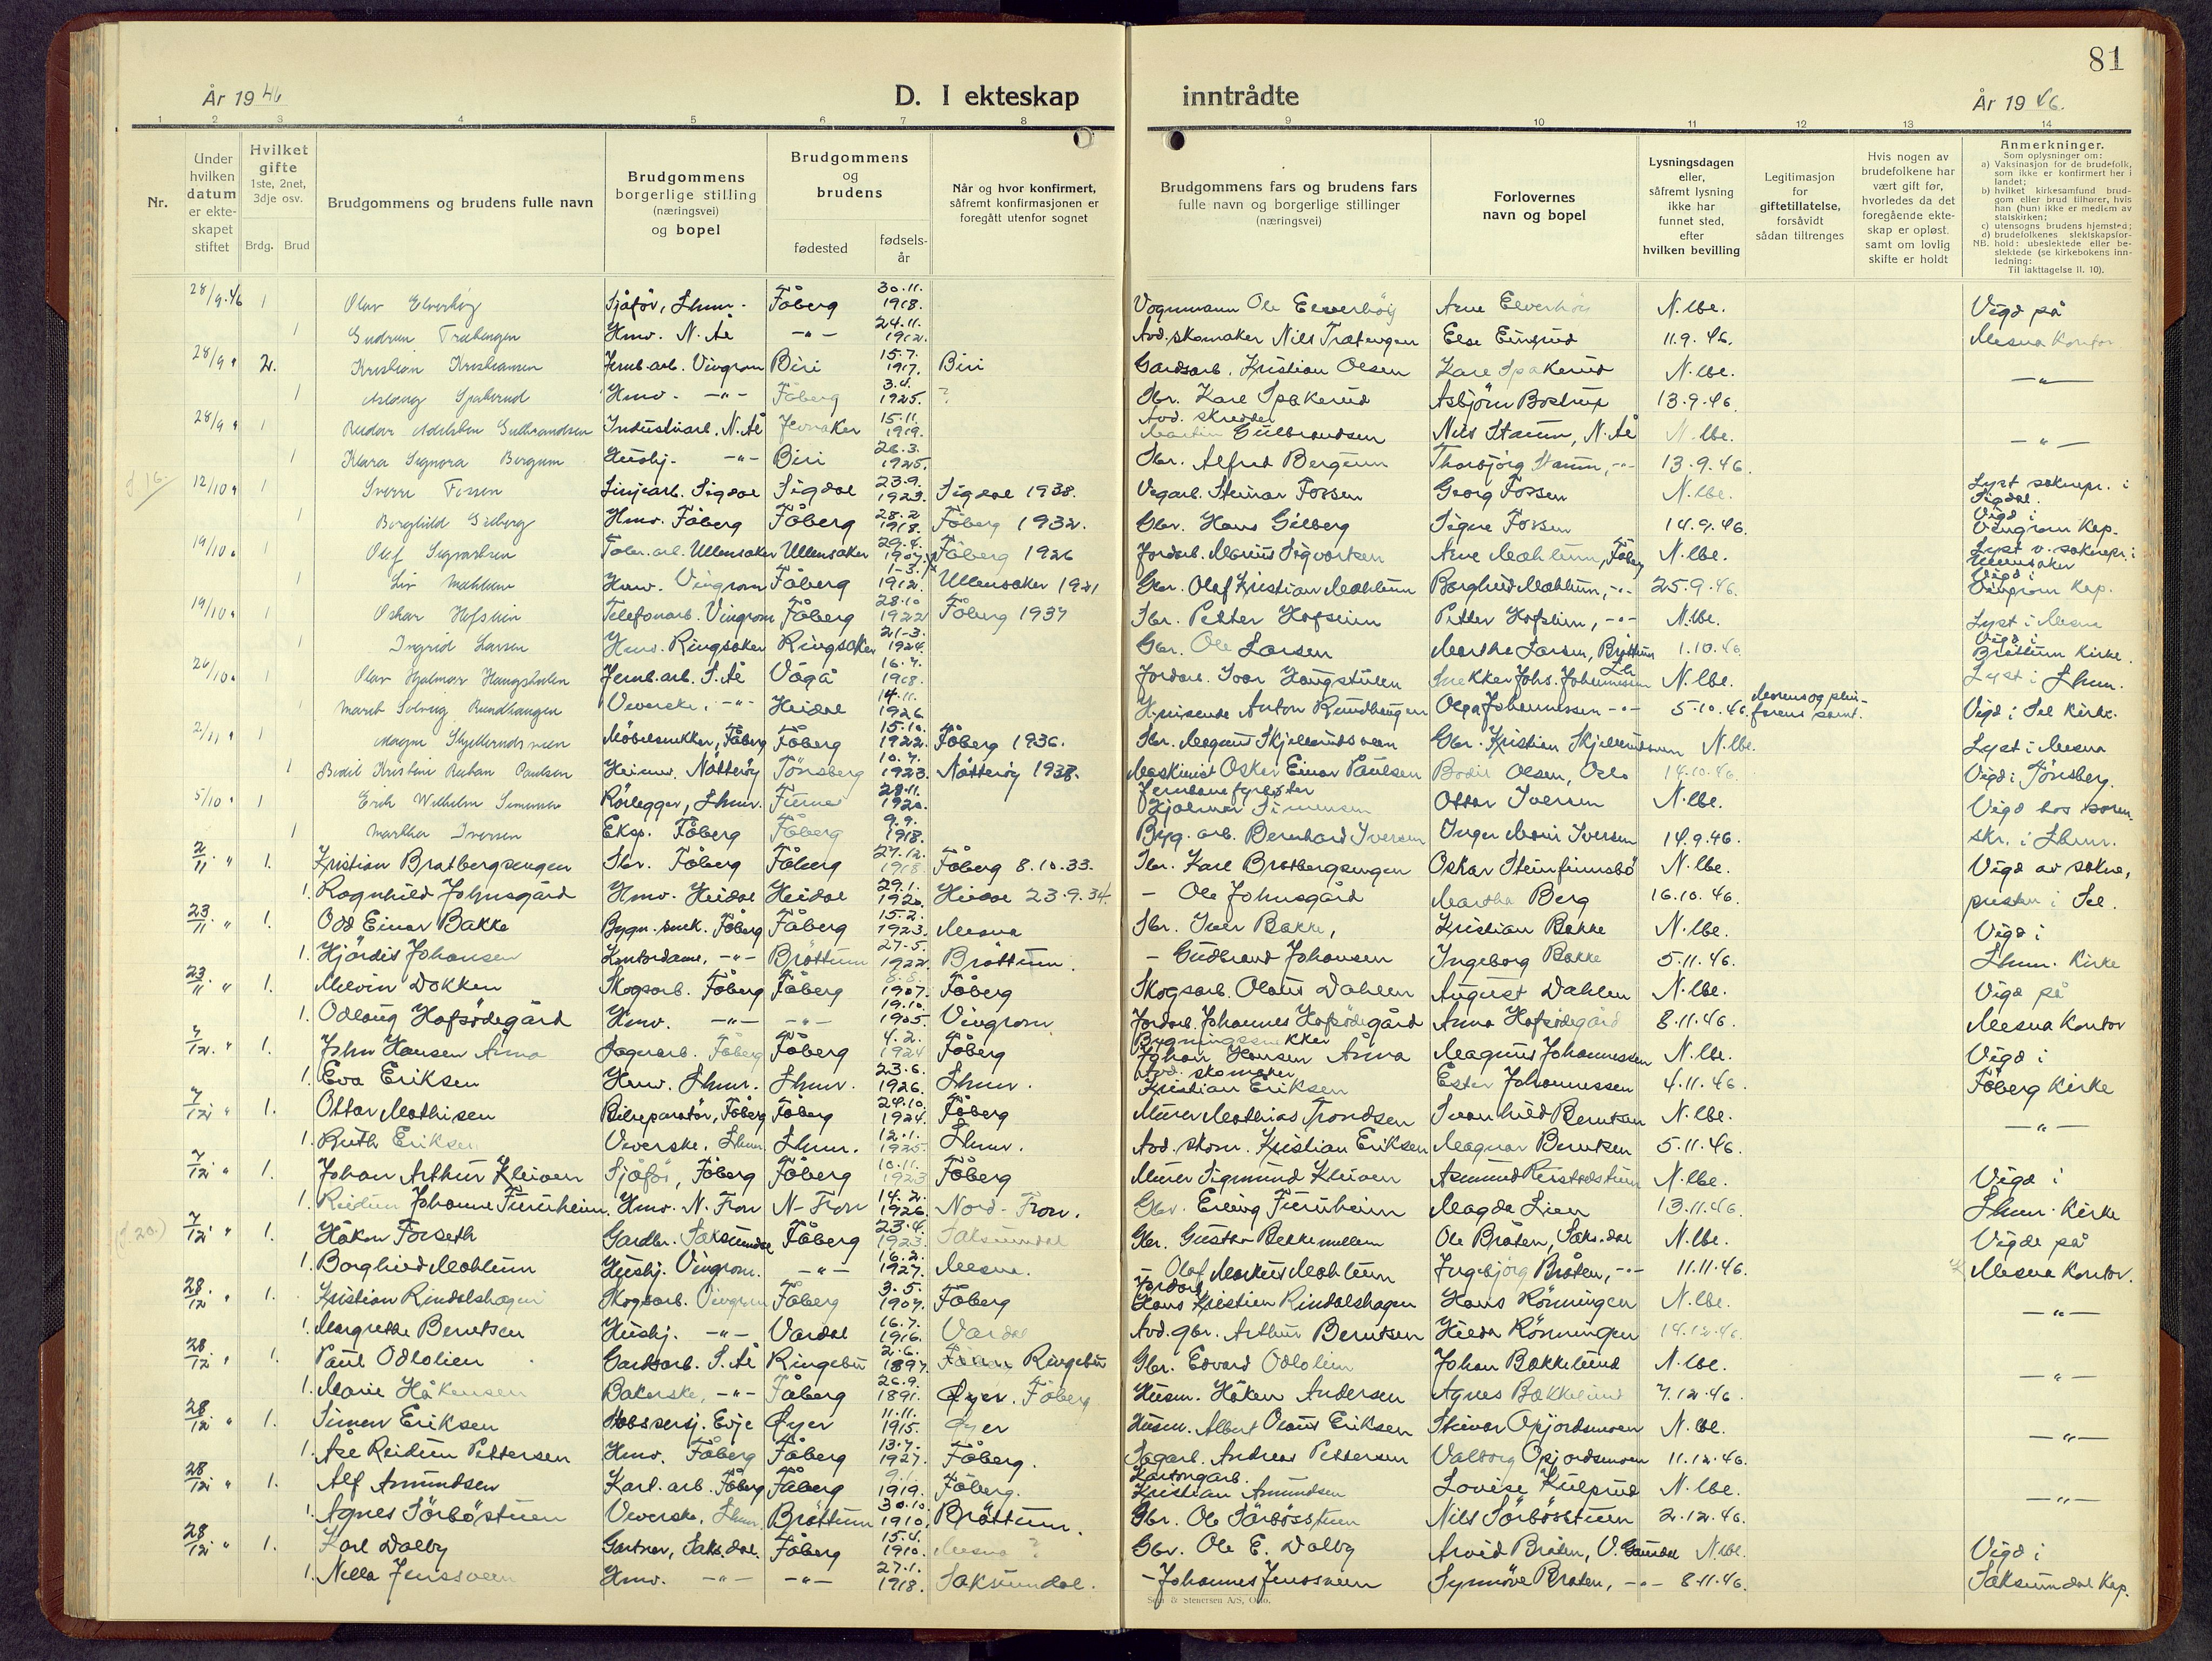 81
År 1946
D. I ekteskap
inntrådte
År 1946.
1 2 3 4 5 6 7 8 9 10 11 12 13 14
Nr.
Under hvilken datum er ekte-skapet stiftet
Hvilket gifte 1ste, 2net, 3dje osv.
Brdg. Brud
Brudgommens og brudens fulle navn
Brudgommens borgerlige stilling (næringsvei) og bopel
Brudgommens og brudens
fødested
fødsels-år
Når og hvor konfirmert, såfremt konfirmasjonen er foregått utenfor sognet
Brudgommens fars og brudens fars fulle navn og borgerlige stillinger (næringsvei)
Forlovernes navn og bopel
Lysningsdagen eller, såfremt lysning ikke har funnet sted, efter hvilken bevilling
Legitimasjon for giftetillatelse, forsåvidt sådan tiltrenges
Hvis nogen av brudefolkene har vært gift før, hvorledes da det foregående ekte-skap er opløst samt om lovlig skifte er holdt
Anmerkninger.
Som oplysninger om:
a) Vaksinasjon for de brudefolk, som ikke er konfirmert her i landet;
b) hvilket kirkesamfund brud-gom eller brud tilhører, hvis han (hun) ikke er medlem av statskirken;
c) utensogns brudens hjemsted;
d) brudefolkenes slektskapsfor-hold: ubeslektede eller be-slektede (se kirkebokens inn-ledning:
NB.
Til iakttagelse II. 10).
28/9.46 1 Olav Elverhøy Sjåfør, Lhmr. Fåberg 30.11. 1918. Vognmann Ole Elverhøy Arne Elverhöi N.lbe. Vigd på
1 Gudrun Tratengen Hmv. N. Ål -"- 24.11. 1912. Avd. skomaker Nils Tratengen Else 11.9.46. Mesna kontor
28/9 " 2. Kristian Kristiansen Jernb.arb. Vingrom Biri 15.7. 1917. Biri Gardsarb. Kristian Olsen Kare Spakerud N.lbe. -"-
1 Aslaug Spakerud Hmv. -"- Fåberg 3.4. 1925. ? Sbr. Kare Spakerud Asbjörn Bostrup 13.9.46.
28/9 " 1 Reidar Gulbrandsen Industriarb. N. Ål Jevnaker 15.11. 1919. Avd. skredder Martin Gulbrandsen Nils Staum, N. Ål N.lbe. -"-
1 Klara Signora Bergum Hushj. -"- Biri 26.3. 1925. Sbr. Alfred Bergum Thorbjörg Staum, -"- 13.9.46.
12/10 " 1 Sverre Fossen Linjearb. Sigdal Sigdal 23.9. 1923. Sigdal 1938. Vegarb. Steinar Fossen Georg Fossen N.lbe. Lyst soknepr. i Sigdal.
1 Borghild Gilberg Hmv. Fåberg Fåberg 28.2 1918. Fåberg 1932. Gbr. Hans Gilberg Signe Fossen 14.9.46. Vigd i Vingrom Kap.
19/10 " 1 Olaf Sigvartsen Ullensaker Ullensaker 29.4. 1907. Fåberg 1926 Jordarb. Marius Sigvartsen Arne Mæhlum, Fåberg N.lbe. Lyst v. soknepr. i Ullensaker
1 Liv Mæhlum Hmv. Vingrom Fåberg 1-3. 1912. Ullensaker 1921 Gbr. Olaf Kristian Mæhlum Borghild Mæhlum, -"- 25.9.46. Vigd i Vingrom Kap.
19/10 " 1 Oskar Hofstein Telefonarb. Vingrom Fåberg 28.10 1922 Fåberg 1937 Sbr. Petter Hofstein Petter Hofstein, -"- N.lbe. Lyst i Mesna
1 Ingrid Larsen Hmv. Ringsaker Ringsaker 21-3. 1924. Gbr. Ole Larsen Marthe Larsen, Brøttum 1.10.46. Vigd i Brøttum kirke.
26/10 " 1 Olav Hjalmar Haugstulen Jernb.arb. S. Ål Vågå 16.7. 1918. Jordarb. Ivar Haugstulen Snekker Johs. Johannessen N.lbe. Lyst i Lhmr.
1 Marit Solveig Rundhaugen Veverske, -"- Heidal 14.11. 1926. Anton Rundhaugen Olga Johannessen -"- 5.10.46. Vigd i Sel kirke.
2/11 " 1 Magne Skjellerudsveen Möbelsnekker, Fåberg Fåberg 15.10. 1922. Fåberg 1936. Sbr. Magnus Skjellerudsveen Gbr. Kristian Skjellerudsveen N.lbe. Lyst i Mesna
1 Bodil Kristine Paulsen Heimv. Nötteröy Tönsberg 10.7. 1923. Nötteröy 1938. Maskinist Oskar Einar Paulsen Bodil Olsen, Oslo 14.10.46. Vigd i Tönsberg.
5/10 " 1 Erik Wilhelm Simensen Rörlegger, Lhmr. Furnes 28.11. 1920. Jernbanefyrböter Hjalmar Simensen Ottar Iversen N.lbe. Vigd hos soren-
1 Martha Iversen Eksp. Fåberg Fåberg 9.9. 1918. Byg. arb. Bernhard Iversen Inger Marie Iversen 14.9.46. skr. i Lhmr.
2/11 " 1. Kristian Bratbergsengen Sbr. Fåberg Fåberg 27.12. 1918 Fåberg 8.10.33. Sbr. Kare Bratbergsengen Oskar Steinfinnsbö N.lbe. Vigd av sokne,
1. Ragnhild Johnsgård Hmv. Heidal Heidal 29.1. 1920. Heidal 23.9.34. - Ole Johnsgård Martha Berg 16.10.46. presten i Sel.
23/11 " 1. Odd Einar Bakke Bygn. snek. Fåberg Fåberg 15.2. 1923. Mesna Sbr. Iver Bakke, Kristian Bakke N.lbe. Vigd i
1. Hjördis Johansen Kontordame, -"- Brøttum 27.5. 1922. Brøttum. - Gudbrand Johansen Ingeborg Bakke 5.11.46. Lhmr. Kirke
23/11 " 1. Melvin Dokken Skogsarb. Fåberg Fåberg 8.8. 1907. Fåberg Skogsarb. Olaus Dahlen August Dahlen N.lbe. Vigd på
1. Odlaug Hofsödegård Hmv. -"- -"- 19.10. 1905. Vingrom Jordarb. Johannes Hofsödegård Anna Hofsödegård 8.11.46. Mesna Kontor
7/12. " 1. John Hansen Åma Sagarb. Fåberg Fåberg 4.2. 1924 Fåberg Bygningssnekker Johan Hansen Åma Magnus Johannessen N.lbe. Vigd i
1. Eva Eriksen Hmv. Lhmr. Lhmr. 23.6. 1926. Lhmr. Avd. skomaker Kristian Eriksen Ester Johannessen 4.11.46. Fåberg Kirke
7/12 " 1. Ottar Mathisen Bilreparatör, Fåberg Fåberg 24.10. 1924. Fåberg Murer Mathias Trondsen Svanhild Berntsen N.lbe. -"-
1. Ruth Eriksen Veverske, Lhmr. Lhmr. 12.1. 1925. Lhmr. Avd. skom. Kristian Eriksen Magnar Berntsen 5.11.46.
7/12 " 1. Johan Arthur Kleiven Sjåför, Fåberg Fåberg 10.11. 1923 Fåberg Murer Sigmund Kleiven Asmund N.lbe. Vigd i
1. Reidun Johanne Furuheim. Hmv. N. Fron N-Fron 14.2. 1926. Nord-Fron. Gbr. Erling Furuheim Magda Lien 13.11.46. Lhmr. Kirke
7/12 " 1. Håkon Forseth Gardbr. Saksumdal Fåberg 23.4. 1923. Saksumdal Gbr. Gustav Bekkemellem Ole Bråten, Saks.dal N.lbe. Vigde på
1. Borghild Mæhlum Hushj. Vingrom. -"- 16.2. 1927. Mesna. - Olaf Markus Mæhlum Ingebjörg Bråten, -"- 11.11.46. Mesna Kontor.
28/12 " 1. Kristian Rindalshagen Skogsarb. Vingrom Fåberg 3.5. 1907. Fåberg Jordarb. Hans Kristian Rindalshagen Hans Rönningen N.lbe. -"-
1. Margrethe Berntsen Hushj. -"- Vardal 16.7. 1916. Vardal Avd. gbr. Arthur Berntsen Hilda Rönningen 14.12.46.
28/12 " 1. Paul Odlolien Gardsarb. S. Ål Ringebu 2.6. 1897. Ringebu Gbr. Edvard Odlolien Johan Bakkelund N.lbe. -"-
1. Marie Håkensen Bakerske, -"- Fåberg 26.9. 1891. Øyer. Fåberg Husm. Håken Andersen Agnes Bakkelund 7.12.46.
28/12 " 1. Simen Eriksen Evje Øyer 11.11. 1915. Øyer Husm. Albert Olaus Eriksen Steinar Opjordsmoen N.lbe. -"-
1. Åse Reidun Pettersen Hmv. Fåberg Fåberg 13.7. 1927. Fåberg. Sagarb. Andreas Pettersen Valborg Opjordsmoen 11.12.46.
28/12 " 1. Alf Amundsen Kart. arb. Fåberg Fåberg 9.1. 1919. Fåberg. Kartongarb. Kristian Amundsen Lovise Kulprud N.lbe. -"-
1. Agnes Sörböstuen Veverske, Lhmr. Brøttum 30.10. 1910. Brøttum. Gbr. Ole Sörböstuen Nils Sörböstuen 2.12.46.
28/12 " 1. Karl Dalby Gartner, Saks.dal. Fåberg 15.4. 1910. Mesna ? Gbr. Ole E. Dalby Arvid Bråten, V. Gausdal N.lbe. Vigd i
1. Nella Jensveen Hmv. -"- -"- 27.1. 1918. Saksumdal. - Johannes Jensveen Synnöve Bråten, -"- 8.11.46. Saksumdal Kap.
Sem & Stenersen A/S, Oslo.